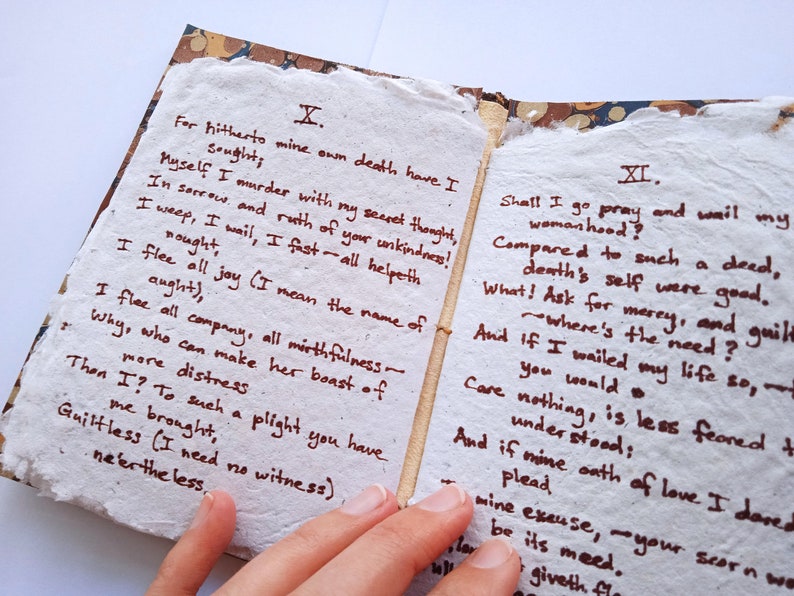 X.
For hitherto mine own death have I
sought;
Myself I murder with my secret thought,
In sorrow and ruth of your unkindness!
I weep, I wail, I fast ~ all helpeth
nought,
I flee all joy (I mean the name of
aught),
I flee all company, all mirthfulness ~
Why, who can make her boast of
more distress
Than I? To such a plight you have
me brought,
Guiltless (I need no witness)
ne'ertheless.
XI.
Shall I go pray and wail my
womanhood?
Compared to such a deed,
death's self were good.
What! Ask for mercy, and
~where's the need?
And if I wailed my life so, ~
you would
Care nothing, is less feared
understood;
And if mine oath of love I dared
plead
mine excuse, ~your scorn
be its meed.
giveth